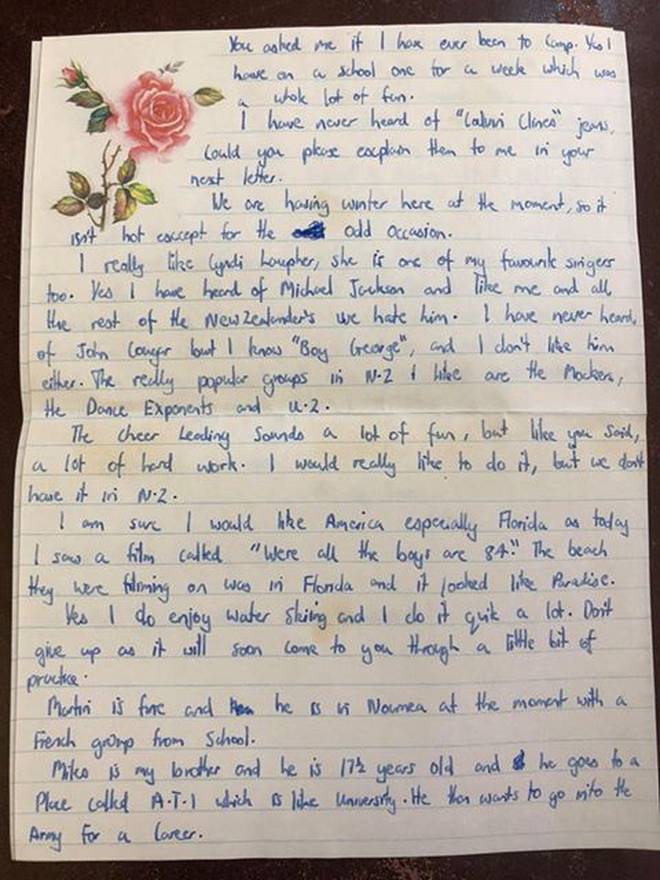 You asked me if I have ever been to Camp. Yes I
have on a school one for a week which was
a whole lot of fun.
I have never heard of "Calvin Clines" jeans,
Could you please explain them to me in your
next letter.
We are having winter here at the moment, so it
isn't hot except for the odd occasion.
I really like Cyndi Laupher, she is one of my favourite singers
too. Yes I have heard of Michael Jackson and like me and all
the rest of the New Zealander's we hate him. I have never heard,
of John Cougar but I know "Boy George", and I don't like him
either. The really popular groups in N-Z I like are the Mockers,
the Dance Exponents and U-2.
The Cheer Leading Sounds a lot of fun, but like you Said,
a lot of hard work. I would really like to do it, but we don't
have it in N-Z.
I am sure I would like America especially Florida as today
I saw a film called "Were all the boys are 84." The beach
they were filming on was in Florida and it looked like Paradise.
Yes I do enjoy water Skiing and I do it quik a lot. Don't
give up as it will soon come to you through a little bit of
practice.
Martin is fine and he is in Noumea at the moment with a
French group from School.
Mike is my brother and he is 17½ years old and he goes to a
Place called A-T-I which is like University. He than wants to go into the
Army for a Career.